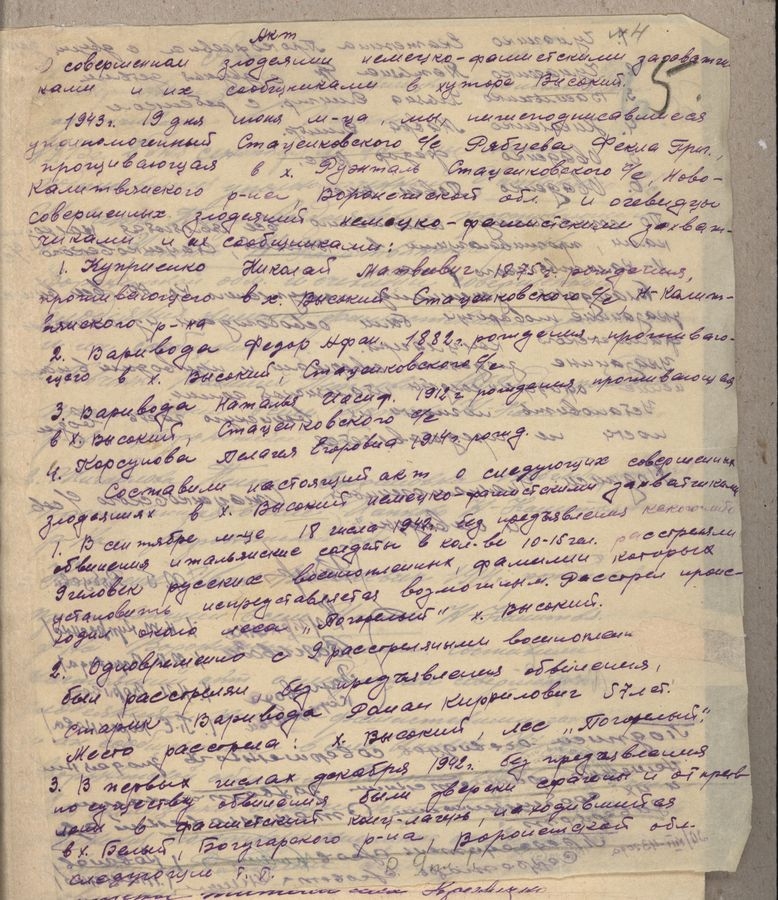 Акт
О совершеном злодеянии немецко-фашистскими захватчи-
ками и их сообщниками в хуторе Высокий.
1943г. 19 дня июня м-ца, мы, нижеподписавшиеся
уполномоченный Стаценковского с/с Рябцева Фекла Григ.,
проживающая в х. Стаценковского с/с, Ново-
Калитвянского р-на, Воронежской обл. и очевидцы
совершенных злодеяний немецко-фашистскими захват-
чиками и их сообщниками:
1. Куприенко Николай Матвеевич 1875г. рождения,
проживающего в х. Высокий Стаценковского с/с Н-Калит-
вянского р-на
2. Варивода Федор Афан. 1882г. рождения проживаю-
щего в х. Высокий, Стаценковского с/с
3. Варивода Наталья Иосиф. 1912г рождения проживающая
в х. Высокий, Стаценковского с/с
4. Корсунова Пелагея Егоровна 1914г. рожд.
Составили настоящий акт о следующих совершенных
злодеяниях в х. Высокий немецко-фашистскими захватчиками
1. В сентябре м-це 18 числа 1942г. без предъявления какого-либо
обвинения итальянские солдаты в кол-ве 10-15 чел. расстреляли
9 человек русских военнопленных, фамилии которых
установить непредставляется возможным. Расстрел проис-
ходил около леса „Погорелый" х. Высокий.
2. Одновременно с 9 расстреляными военноплен
был расстрелян без предъявления обвинения,
старик Варивода Роман Кириллович 57 лет.
Место расстрела: х. Высокий, лес „Погорелый".
3. В первых числах декабря 1942г. без предъявления
по существу обвинения были зверски схвачены и отправ-
лены в фашистский конц-лагерь, находившийся
в х. Белый, Богучарского р-на, Воронежской обл.
следующие г.г.